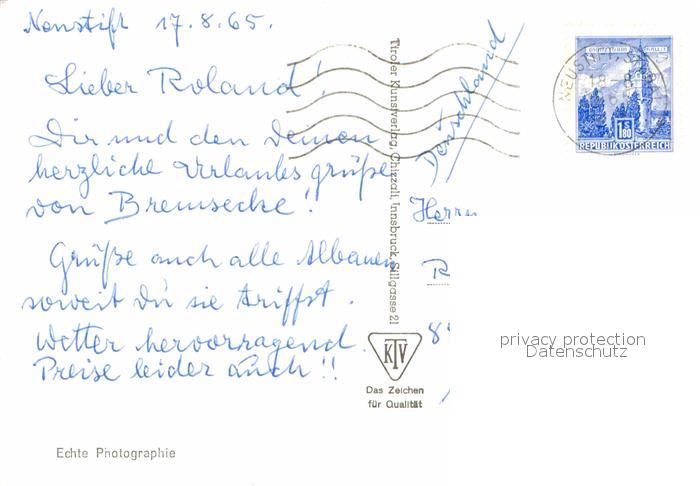 Neustift 17.8.65.
Lieber Roland!
Dir und den Deinen
herzliche Urlaubsgrüße
von Bremsecke!
Grüße auch alle Albanen
soweit du sie triffst.
Wetter hervorragend.
Preise leider auch!!
Echte Photographie
Tiroler Kunstverlag, Chizzali, Innsbruck, Sillgasse 21
KTV
Das Zeichen
für Qualität
Deutschland
Herrn
R
8
NEUSTIFT, S
18.-8.
S 1.80
REPUBLIK ÖSTERREICH
privacy protection
Datenschutz